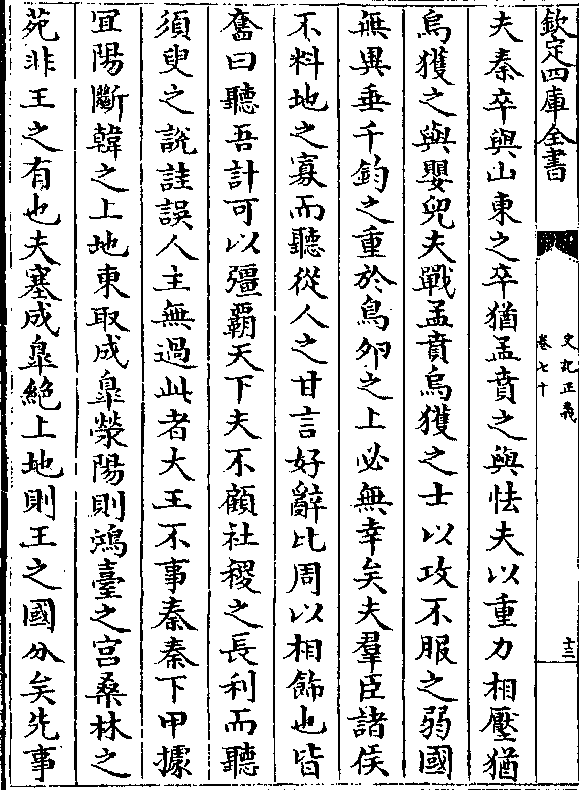 欽定四庫全書
史記正義
卷七十
十三
夫秦卒與山東之卒猶孟賁之與怯夫以重力相壓猶
烏獲之與嬰兒夫戰孟賁烏獲之士以攻不服之弱國
無異垂千鈞之重於鳥卵之上必無幸矣夫羣臣諸侯
不料地之寡而聽從人之甘言好辭比周以相飾也皆
奮曰聽吾計可以彊霸天下夫不顧社稷之長利而聽
須臾之說詿誤人主無過此者大王不事秦秦下甲據
宜陽斷韓之上地東取成臯滎陽則鴻臺之宮桑林之
苑非王之有也夫塞成臯絕上地則王之國分矣先事